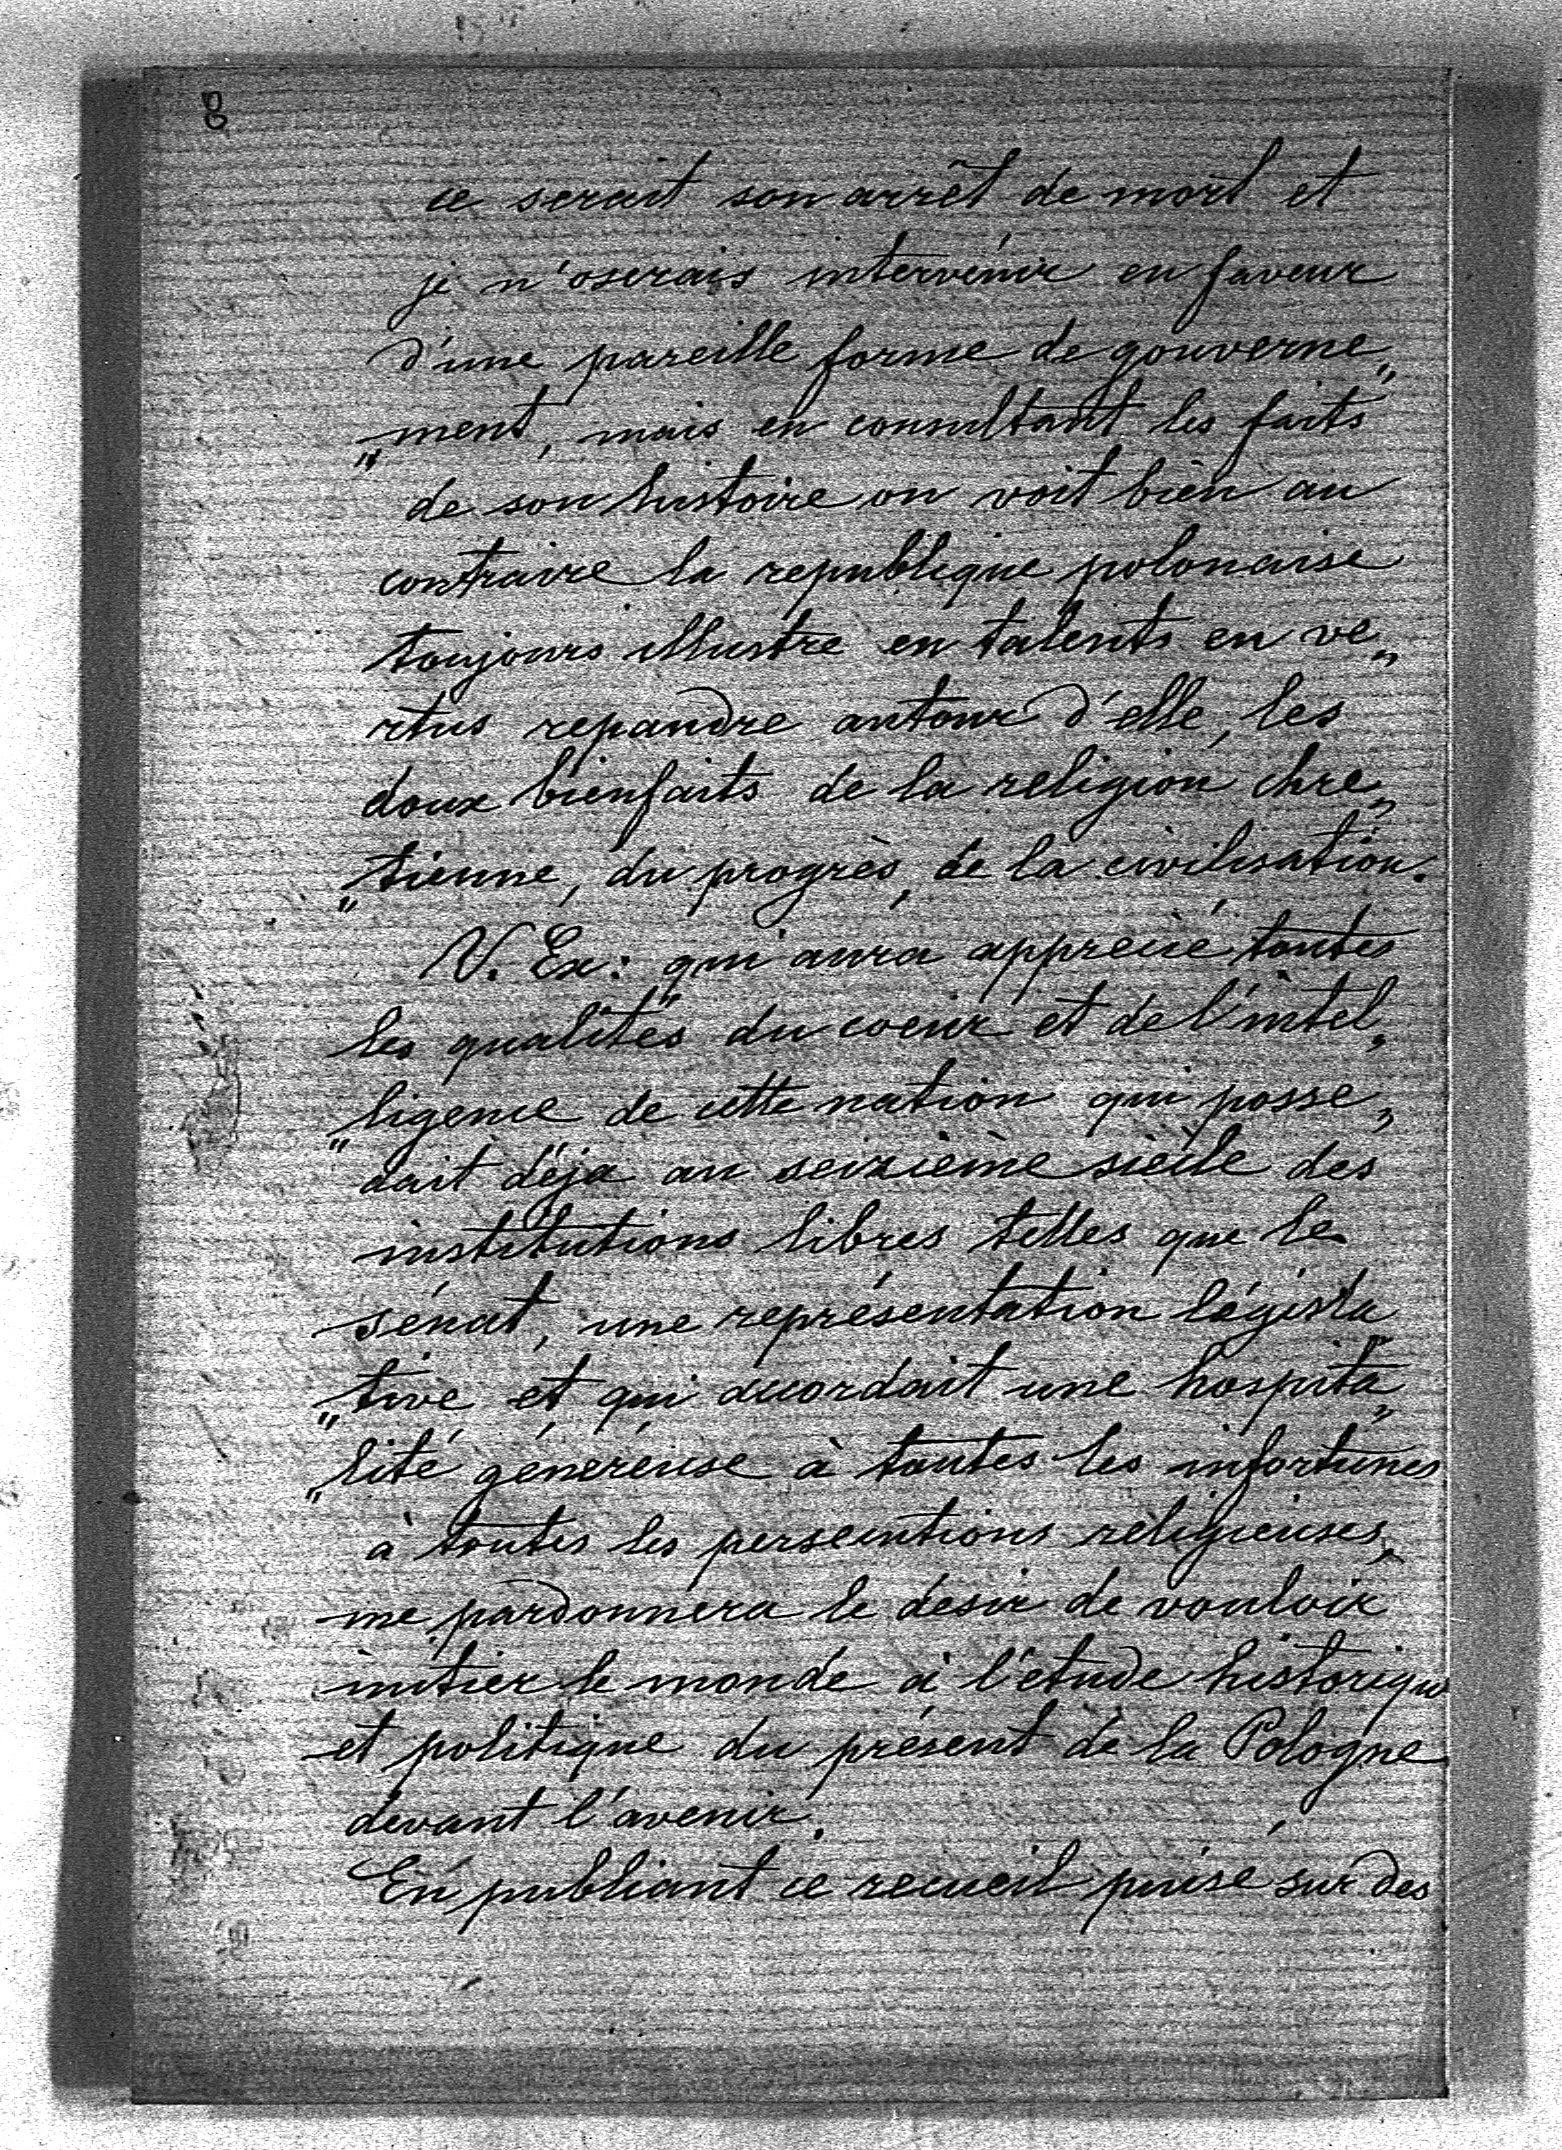 8
ce serait son arrêt de mort et
je n'oserais intervénir en faveur
d'une pareille forme de gouverne„
„ment, mais en consultant les faits
de son histoire on voit bien au
contraire la republique polonaise
toujours illustre en talents en ve„
rtus repandre autour d'elle, les
doux bienfaits de la religion chre„
„tienne, du progrès, de la civilisation.
V. Ex: qui aura apprecié toutes
les qualités du coeur et de l'intel„
„ligence de cette nation qui posse„
dait déja au seizième siècle des
institutions libres telles que le
sénat, une représentation législa„
„tive et qui accordait une hospita„
„lité généreuse à toutes les infortunes
à toutes les persecutions religieuses,
me pardonnera le desir de vouloir
initier le monde à l'étude historique
et politique du présent de la Pologne
devant l'avenir.
En publiant ce recueil puisé sur des